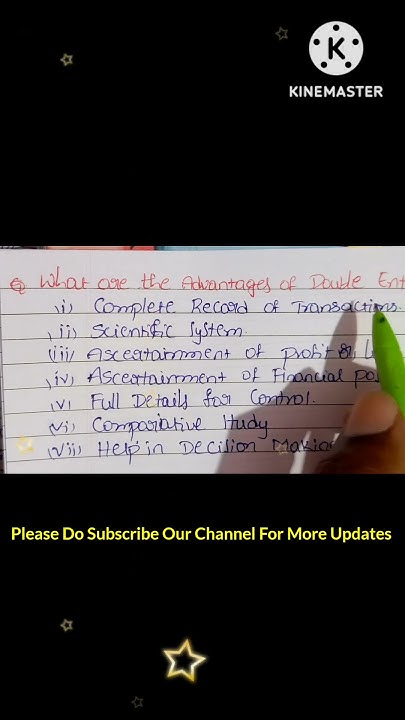 KINEMASTER
Q What are the Advantages of Double Ent
i) Complete Record of Transactions.
ii) Scientific System.
iii) Ascertainment of profit or
iv) Ascertainment of Financial po
v) Full Details for Control.
vi) Comparative Study
vii) Help in Decision Making
Please Do Subscribe Our Channel For More Updates